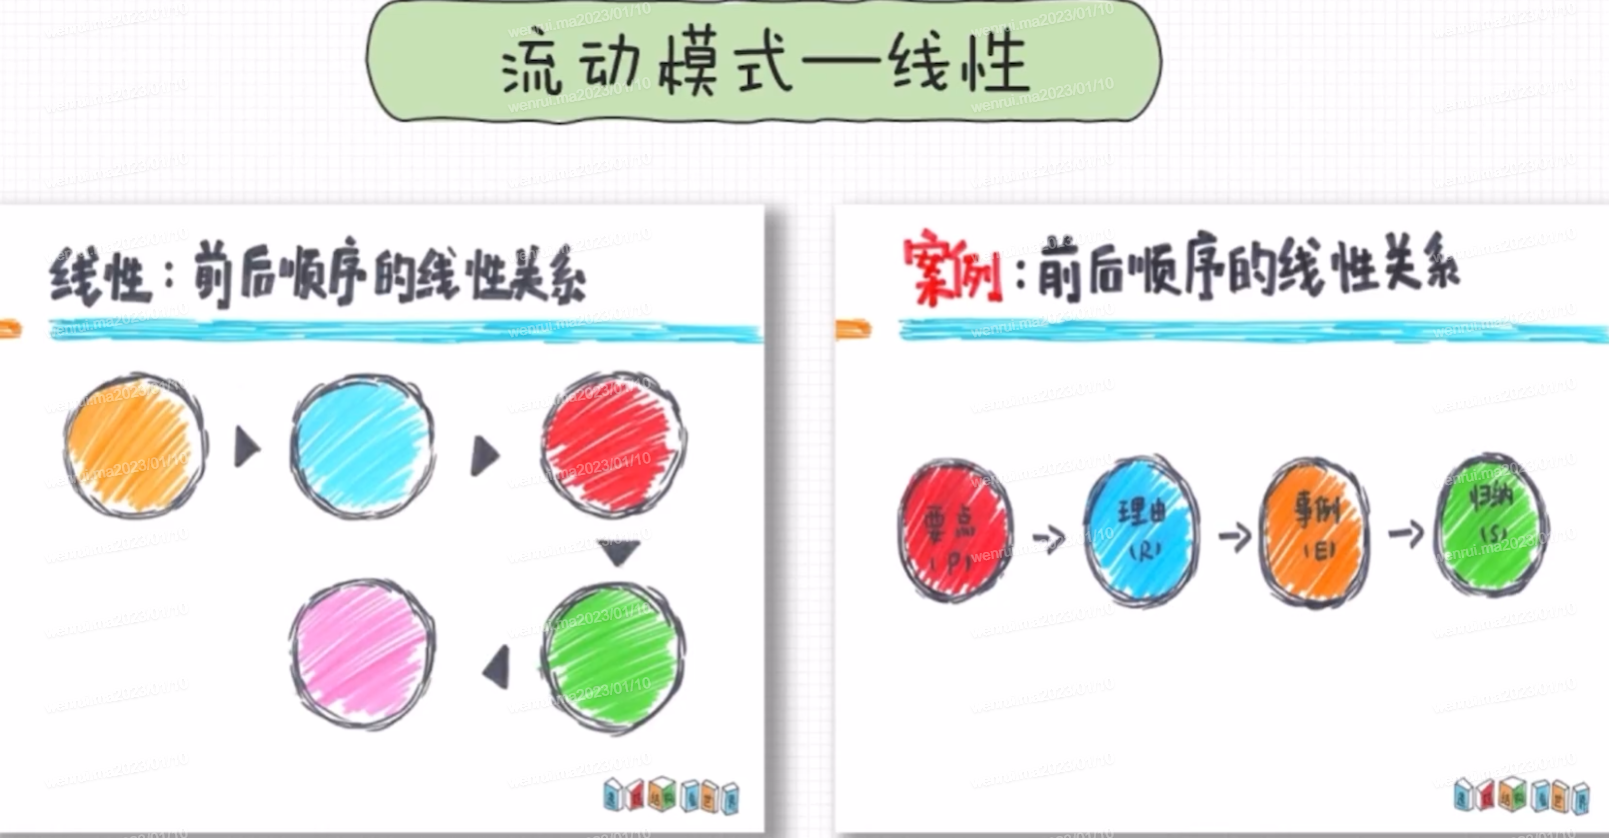 流动模式—线性
线性：前后顺序的线性关系
案例：前后顺序的线性关系
要点
(P)
理由
(R)
事例
(E)
归纳
(S)
wenrui.ma2023/01/10